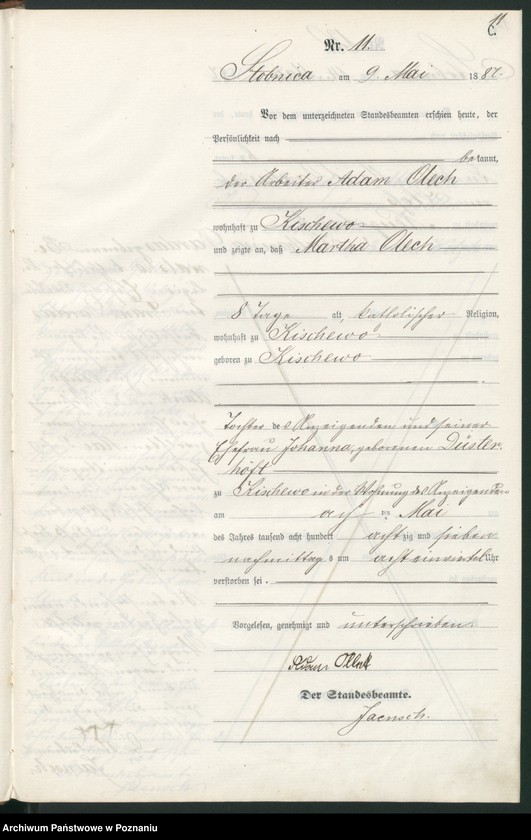 11
C.
Nr. 11.
Stobnica am 9. Mai 1887.
Vor dem unterzeichneten Standesbeamten erschien heute, der
Persönlichkeit nach
bekannt,
der Arbeiter Adam Olech
wohnhaft zu Kischewo
und zeigte an, daß Martha Olech
8 Tage alt, katholischer Religion,
wohnhaft zu Kischewo
geboren zu Kischewo
Tochter des Anzeigenden und seiner
Ehefrau Johanna, geborenen Düster
höft
zu Kischewo in der Wohnung des Anzeigenden
am acht den Mai
des Jahres tausend acht hundert achtzig und sieben
nachmittags um acht einviertel Uhr
verstorben sei.
Vorgelesen, genehmigt und unterschrieben.
Der Standesbeamte.
Jaensch.
Archiwum Państwowe w Poznaniu